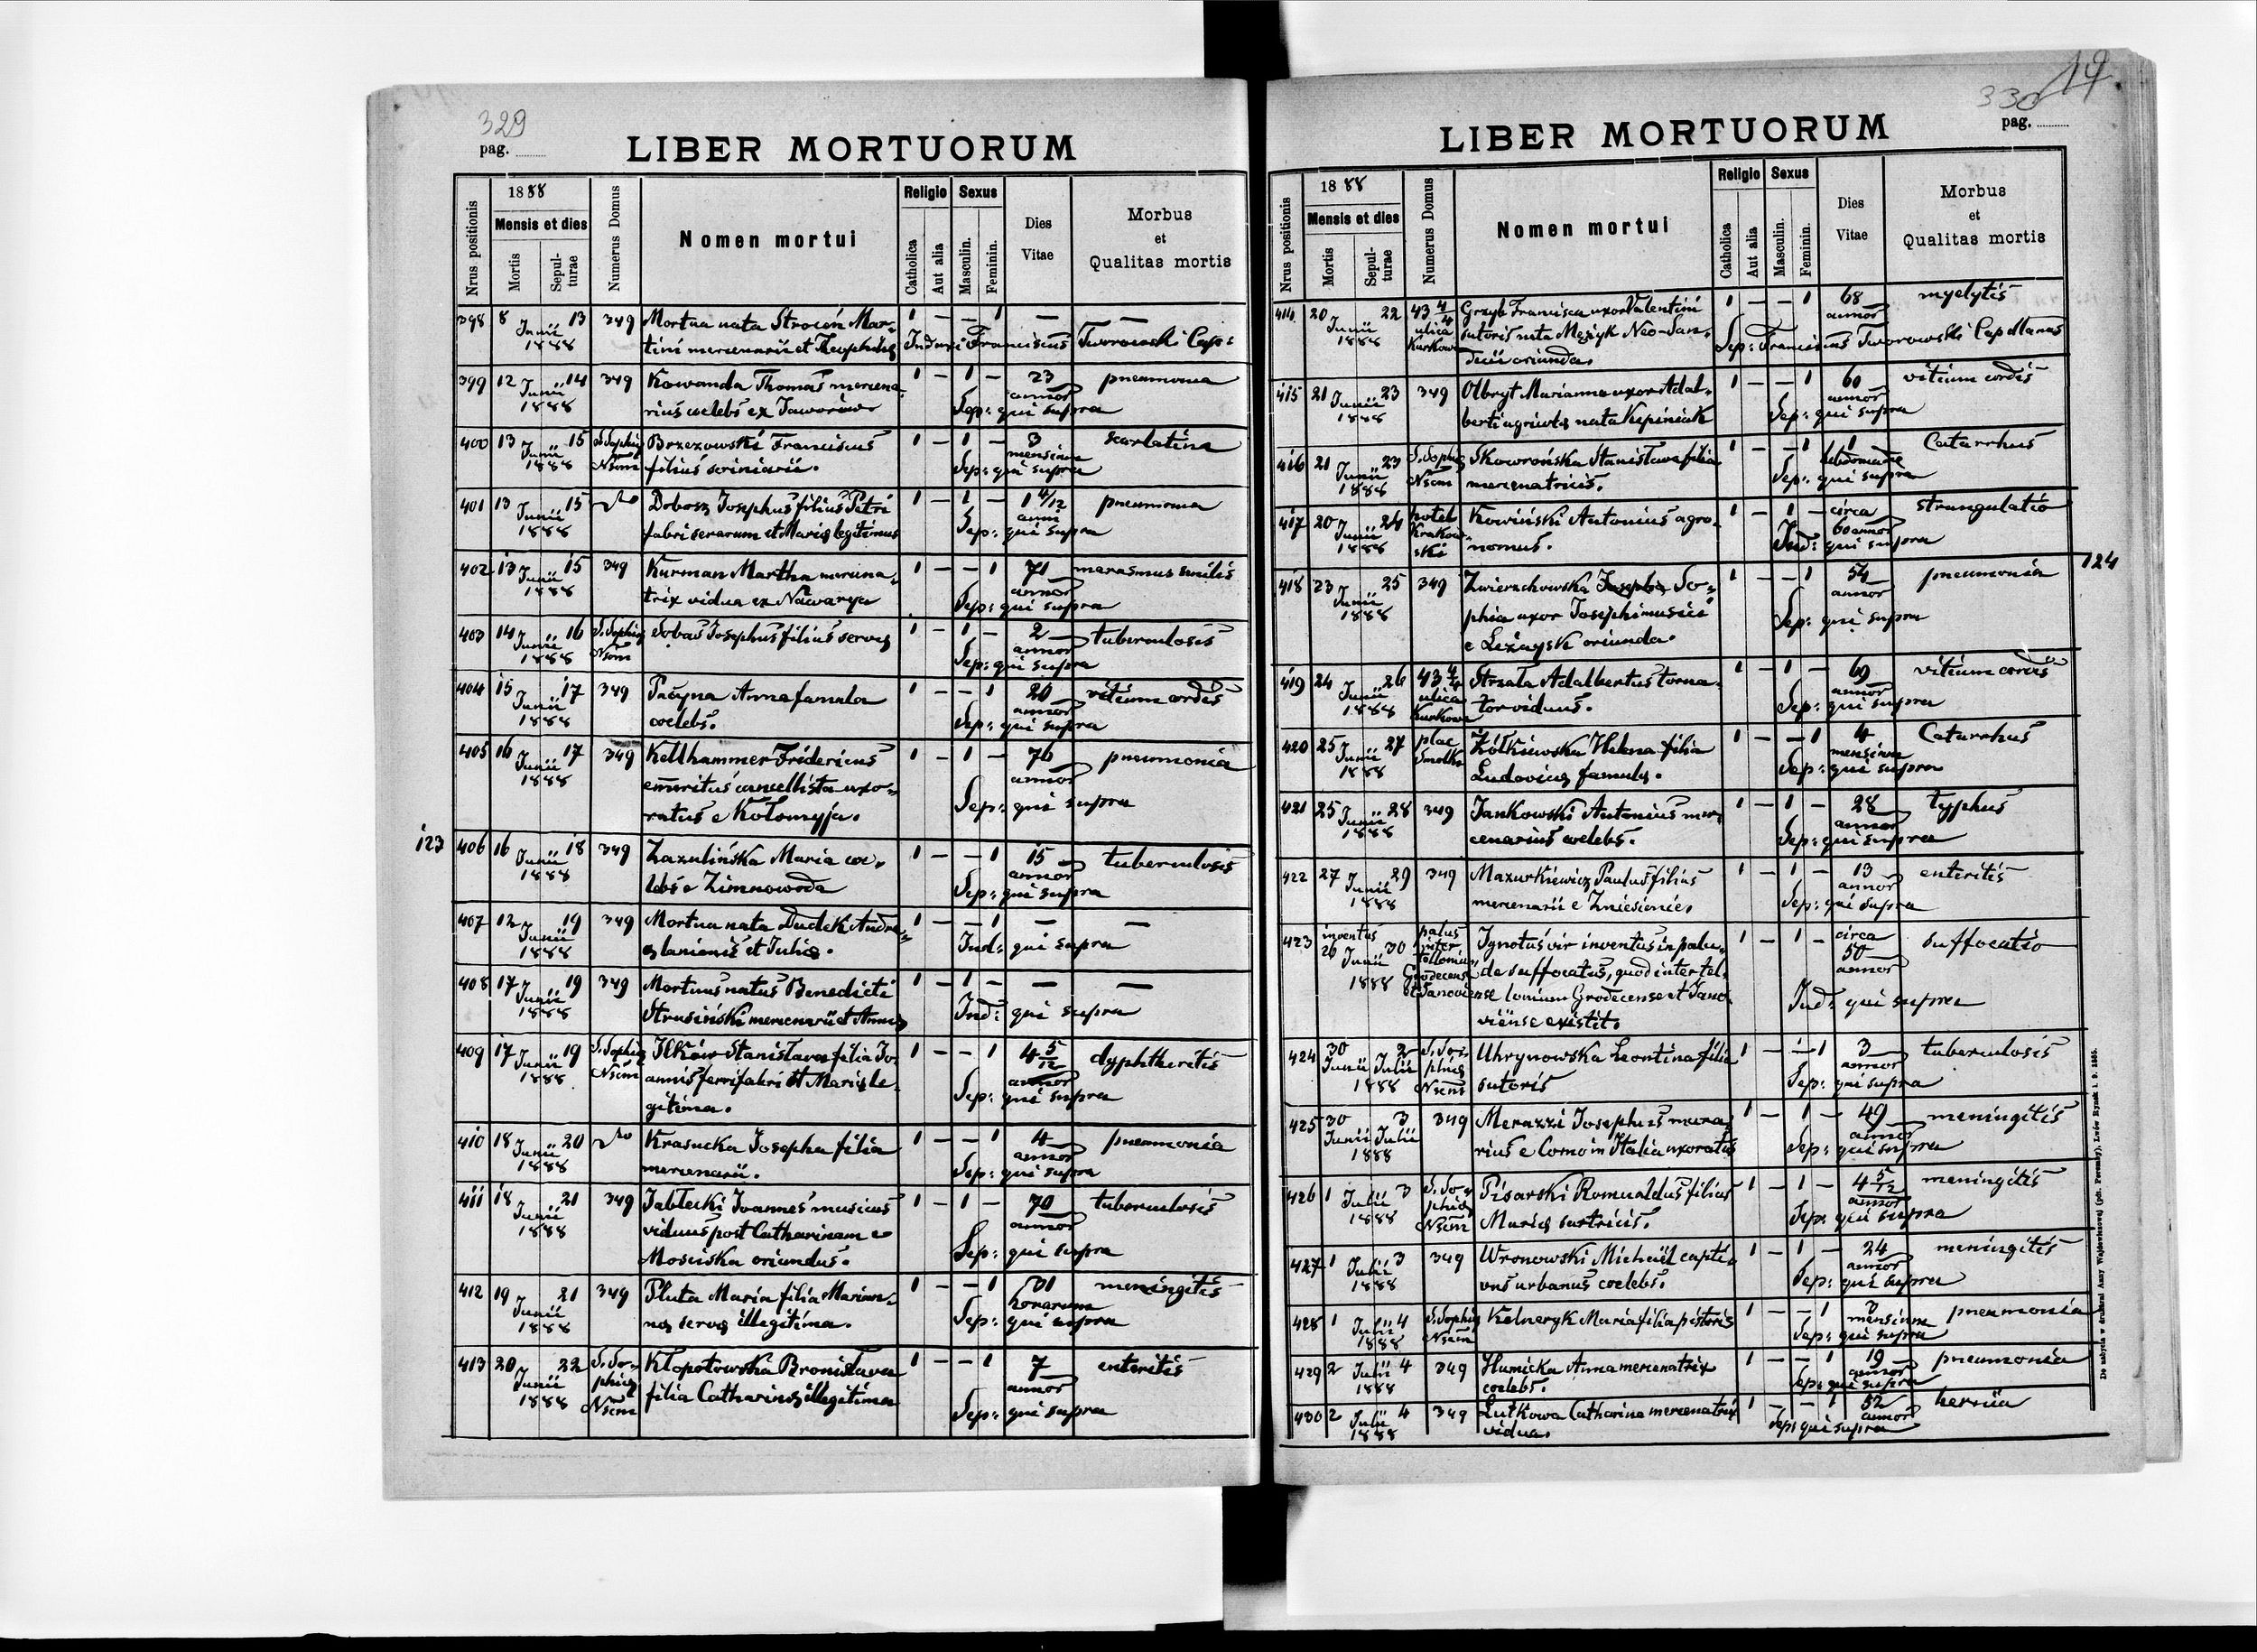 329
pag. ........
LIBER MORTUORUM
Nrus positionis
1888
Mensis et dies
Mortis
Sepul-
turae
Numerus Domus
Nomen mortui
Religio
Catholica
Aut alia
Sexus
Masculin.
Feminin.
Dies
Vitae
Morbus
et
Qualitas mortis
398 8 Junii 13 1888 349 Mortua nata Stroceń Mar- 1 — — 1 — —
tini mercenarii et Theophilae Induxi Franciscus Tworowski Cap:
399 12 Junii 14 1888 349 Kowanda Thomas mercena- 1 — 1 — 23 annor pneumonia
rius coelebs ex Jaworów Sep: qui supra
400 13 Junii 15 1888 S. Sophia Nsem Brzezowski Franciscus 1 — 1 — 3 mensium scarlatina
filius scriniarii. Sep: qui supra
401 13 Junii 15 1888 Dobosz Josephus filius Petri 1 — 1 — 1 4/12 anni pneumonia
fabri serarum et Mariae legitimus Sep: qui supra
402 13 Junii 15 1888 349 Kurman Martha mercena- 1 — — 1 71 annor marasmus senilis
trix vidua ex Nawarya Sep: qui supra
403 14 Junii 16 1888 S. Sophia Nsem Sobas Josephus filius servae 1 — 1 — 2 annor tuberculosis
Sep: qui supra
404 15 Junii 17 1888 349 Paczyna Anna famula 1 — — 1 20 annor vitium cordis
coelebs. Sep: qui supra
405 16 Junii 17 1888 349 Kellhammer Fridericus 1 — 1 — 76 annor pneumonia
emeritus cancellista uxo-
ratus e Kołomyja. Sep: qui supra
123
406 16 Junii 18 1888 349 Zazulińska Maria coe- 1 — — 1 15 annor tuberculosis
lebs e Zimnowoda Sep: qui supra
407 12 Junii 19 1888 349 Mortua nata Dudek Andre- 1 — — 1 — —
ae lanionis et Juliae. Ind: qui supra
408 17 Junii 19 1888 349 Mortuus natus Benedicti 1 — 1 — — —
Strusiński mercenarii et Annae Ind: qui supra
409 17 Junii 19 1888 S. Sophia Nsem Ilków Stanislava filia Jo- 1 — — 1 4 5/12 annor dyphtheritis
annis ferrifabri et Mariae le-
gitima. Sep: qui supra
410 18 Junii 20 1888 Krasucka Josepha filia 1 — — 1 4 annor pneumonia
mercenarii. Sep: qui supra
411 18 Junii 21 1888 349 Jablecki Joannes musicus 1 — 1 — 70 annor tuberculosis
viduus post Catharinam e
Mosciska oriundus. Sep: qui supra
412 19 Junii 21 1888 349 Pluta Maria filia Marian- 1 — — 1 horarum meningitis
nae servae illegitima. Sep: qui supra
413 20 Junii 22 1888 S. So- phiae Nsem Kłopotowska Bronislava 1 — — 1 7 annor enteritis
filia Catharinae illegitima Sep: qui supra
19
330
pag. ........
LIBER MORTUORUM
Nrus positionis
1888
Mensis et dies
Mortis
Sepul-
turae
Numerus Domus
Nomen mortui
Religio
Catholica
Aut alia
Sexus
Masculin.
Feminin.
Dies
Vitae
Morbus
et
Qualitas mortis
414 20 Junii 22 1888 43 4/4 ulica Kurkowa Grzyb Francisca uxor Valentini 1 — — 1 68 annor myelytis
sutoris nata Mężyk Neo-San-
decii oriunda. Sep: Franciscus Tworowski Cap Manus
415 21 Junii 23 1888 349 Olbryt Marianna uxor Adal- 1 — — 1 60 annor vitium cordis
berti agricolae nata Kupiniak Sep: qui supra
416 21 Junii 23 1888 S. Sophiae Nsem Skowrońska Stanislava filia 1 — — 1 1 hebdomadae Catarrhus
mercenatricis. Sep: qui supra
417 20 Junii 24 1888 hotel Krakow- ski Kowiński Antonius agro- 1 — 1 — circa 60 annor strangulatio
nomus. Ind: qui supra
124
418 23 Junii 25 1888 349 Zwierzchowska Josepha So- 1 — — 1 54 annor pneumonia
phia uxor Josephi musici
e Leżaysk oriunda. Sep: qui supra
419 24 Junii 26 1888 43 4/4 ulica Kurkowa Strzała Adalbertus torna- 1 — 1 — 69 annor vitium cordis
tor viduus. Sep: qui supra
420 25 Junii 27 1888 plac Smolki Żółkiewska Helena filia 1 — — 1 4 mensium Catarrhus
Ludovicae famulae. Sep: qui supra
421 25 Junii 28 1888 349 Jankowski Antonius mer- 1 — 1 — 28 annor typhus
cenarius coelebs. Sep: qui supra
422 27 Junii 29 1888 349 Mazurkiewicz Paulus filius 1 — 1 — 13 annor enteritis
mercenarii e Zniesienie. Sep: qui supra
423 inventus 26 Junii 30 1888 palus inter tellonium Grodecense et Janoviense Ignotus vir inventus in palu- 1 — 1 — circa 50 annor suffocatio
de suffocatus, quod inter tel-
lonium Grodecense et Jano-
viense existit. Ind: qui supra
424 30 Junii 2 Julii 1888 S. So- phiae Nsem Uhrynowska Leontina filia 1 — — 1 3 annor tuberculosis
sutoris Sep: qui supra
425 30 Junii 3 Julii 1888 349 Merazzi Josephus mura- 1 — 1 — 49 annor meningitis
rius e Como in Italia uxoratus Sep: qui supra
426 1 Julii 3 1888 S. So- phiae Nsem Pisarski Romualdus filius 1 — 1 — 4 5/12 annor meningitis
Mariae sartricis. Sep: qui supra
427 1 Julii 3 1888 349 Wronowski Michaël capti- 1 — 1 — 24 annor meningitis
vus urbanus coelebs. Sep: qui supra
428 1 Julii 4 1888 S. Sophiae Nsem Kelneryk Maria filia pistoris 1 — — 1 3 mensium pneumonia
Sep: qui supra
429 2 Julii 4 1888 349 Humicka Anna mercenatrix 1 — — 1 19 annor pneumonia
coelebs. Sep: qui supra
430 2 Julii 4 1888 349 Lutkowa Catharina mercenatrix 1 — — 1 52 annor hernia
vidua. Sep: qui supra
De nabycia w drukarni Anny Wajdowiczowej (pdt. Poremby), Lwów Rynek l. 9. 1885.